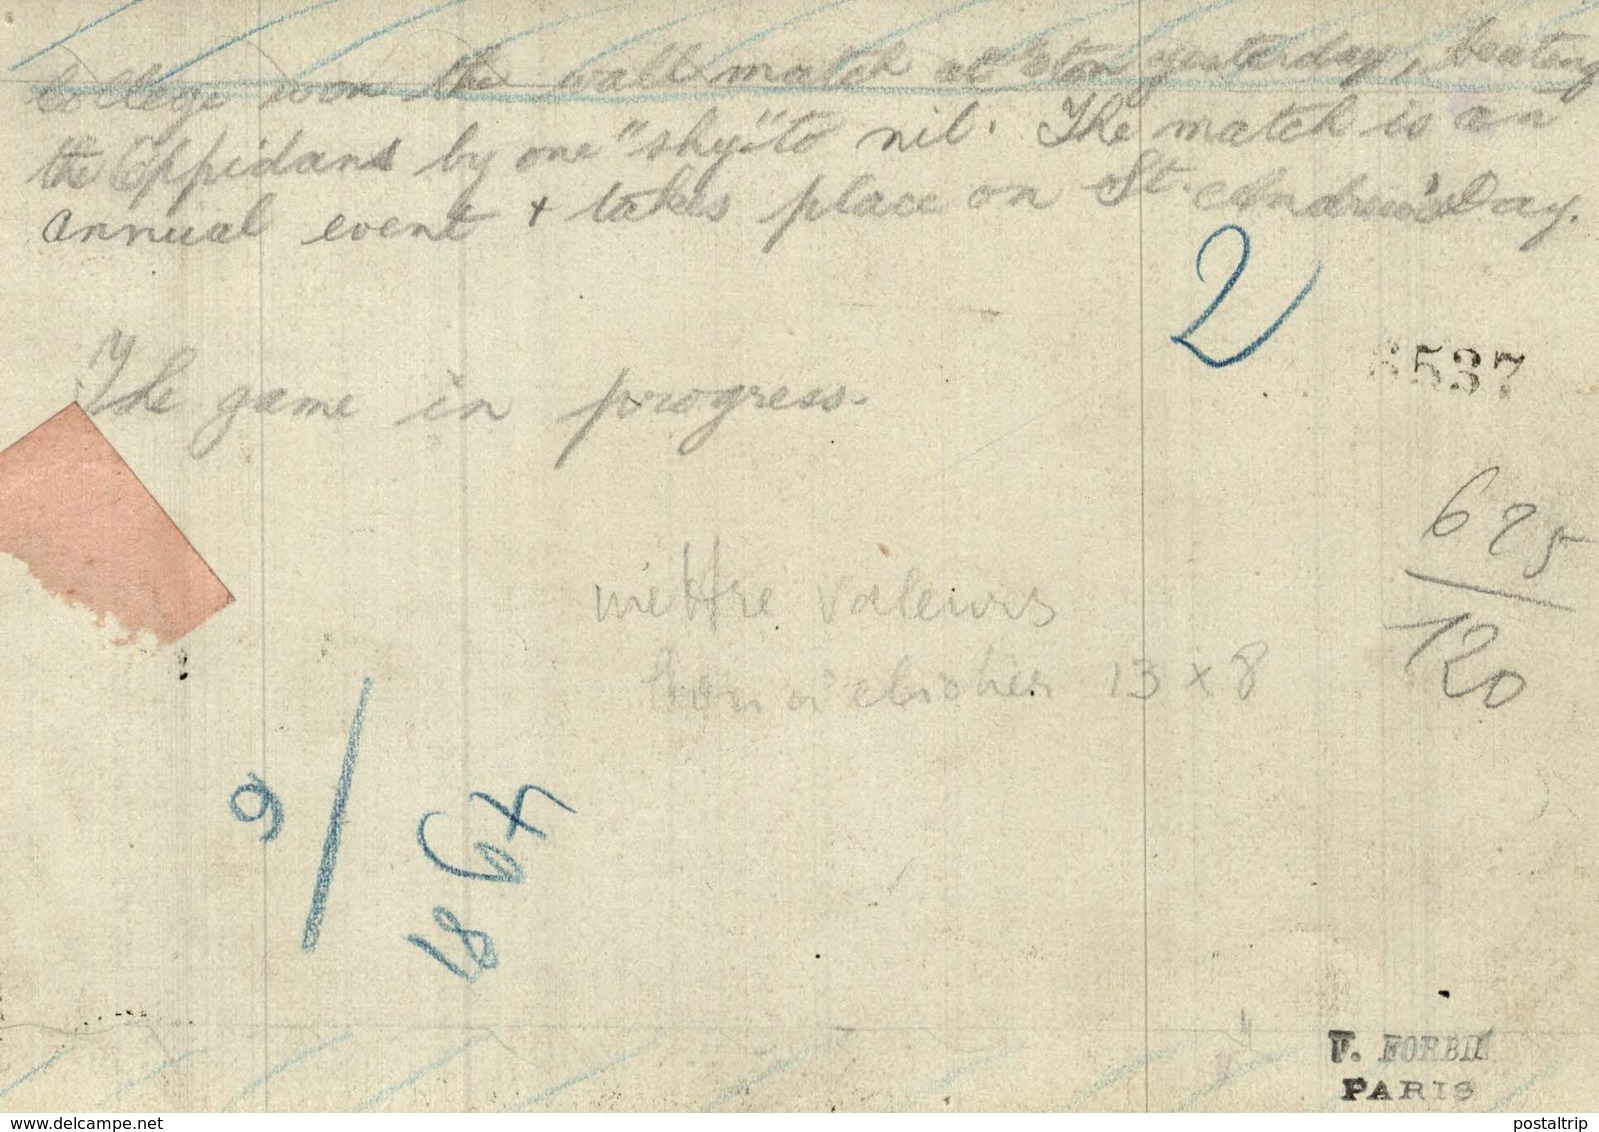 College won the wall match at Eton yesterday, beating
the Oppidans by one "shy" to nil. The match is an
annual event + takes place on St. Andrew's Day.
2
The game in progress.
6537
675
120
mettre valeurs
13 x 8
9
18
49
V. FORBIN
PARIS
www.delcampe.net
postaltrip